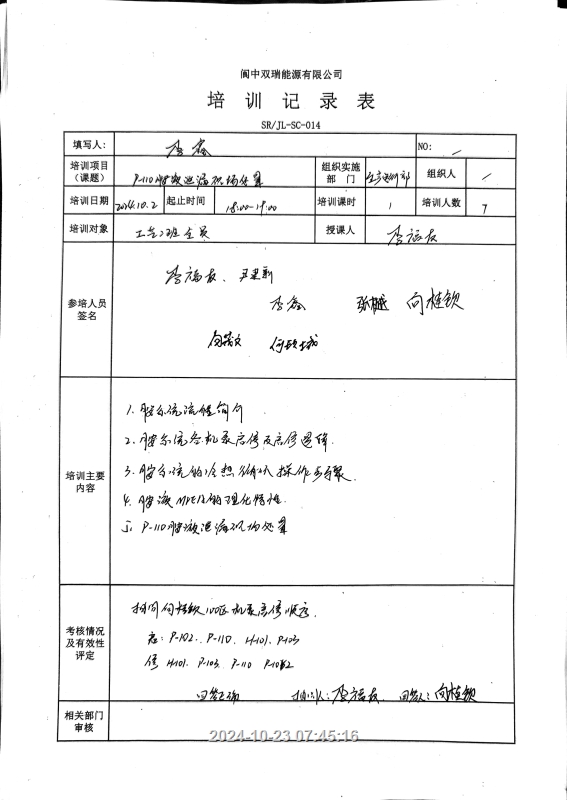 阆中双瑞能源有限公司
培训记录表
SR/JL-SC-014
填写人: 李鑫 NO: /
培训项目（课题） P-110胺液泄漏现场处置 组织实施部门 生产班部 组织人 /
培训日期 2024.10.2 起止时间 18:00-19:00 培训课时 1 培训人数 7
培训对象 工艺二班全员 授课人 李福友
参培人员签名
李福友、
李鑫 向桂钦
培训主要内容
1. 胺系统流程简介
2. 胺系统各机泵启停及启停逻辑.
3. 胺系统的冷热循环操作步骤.
4. 胺液MDEA的理化特性.
5. P-110胺液泄漏现场处置
考核情况及有效性评定
提问向桂钦100区机泵启停顺序.
启: P-102. P-110. H-101. P-103
停 H-101. P-103. P-110 P-102
回答正确 提问人: 李福友 回答人: 向桂钦
相关部门审核
2024-10-23 07:45:16